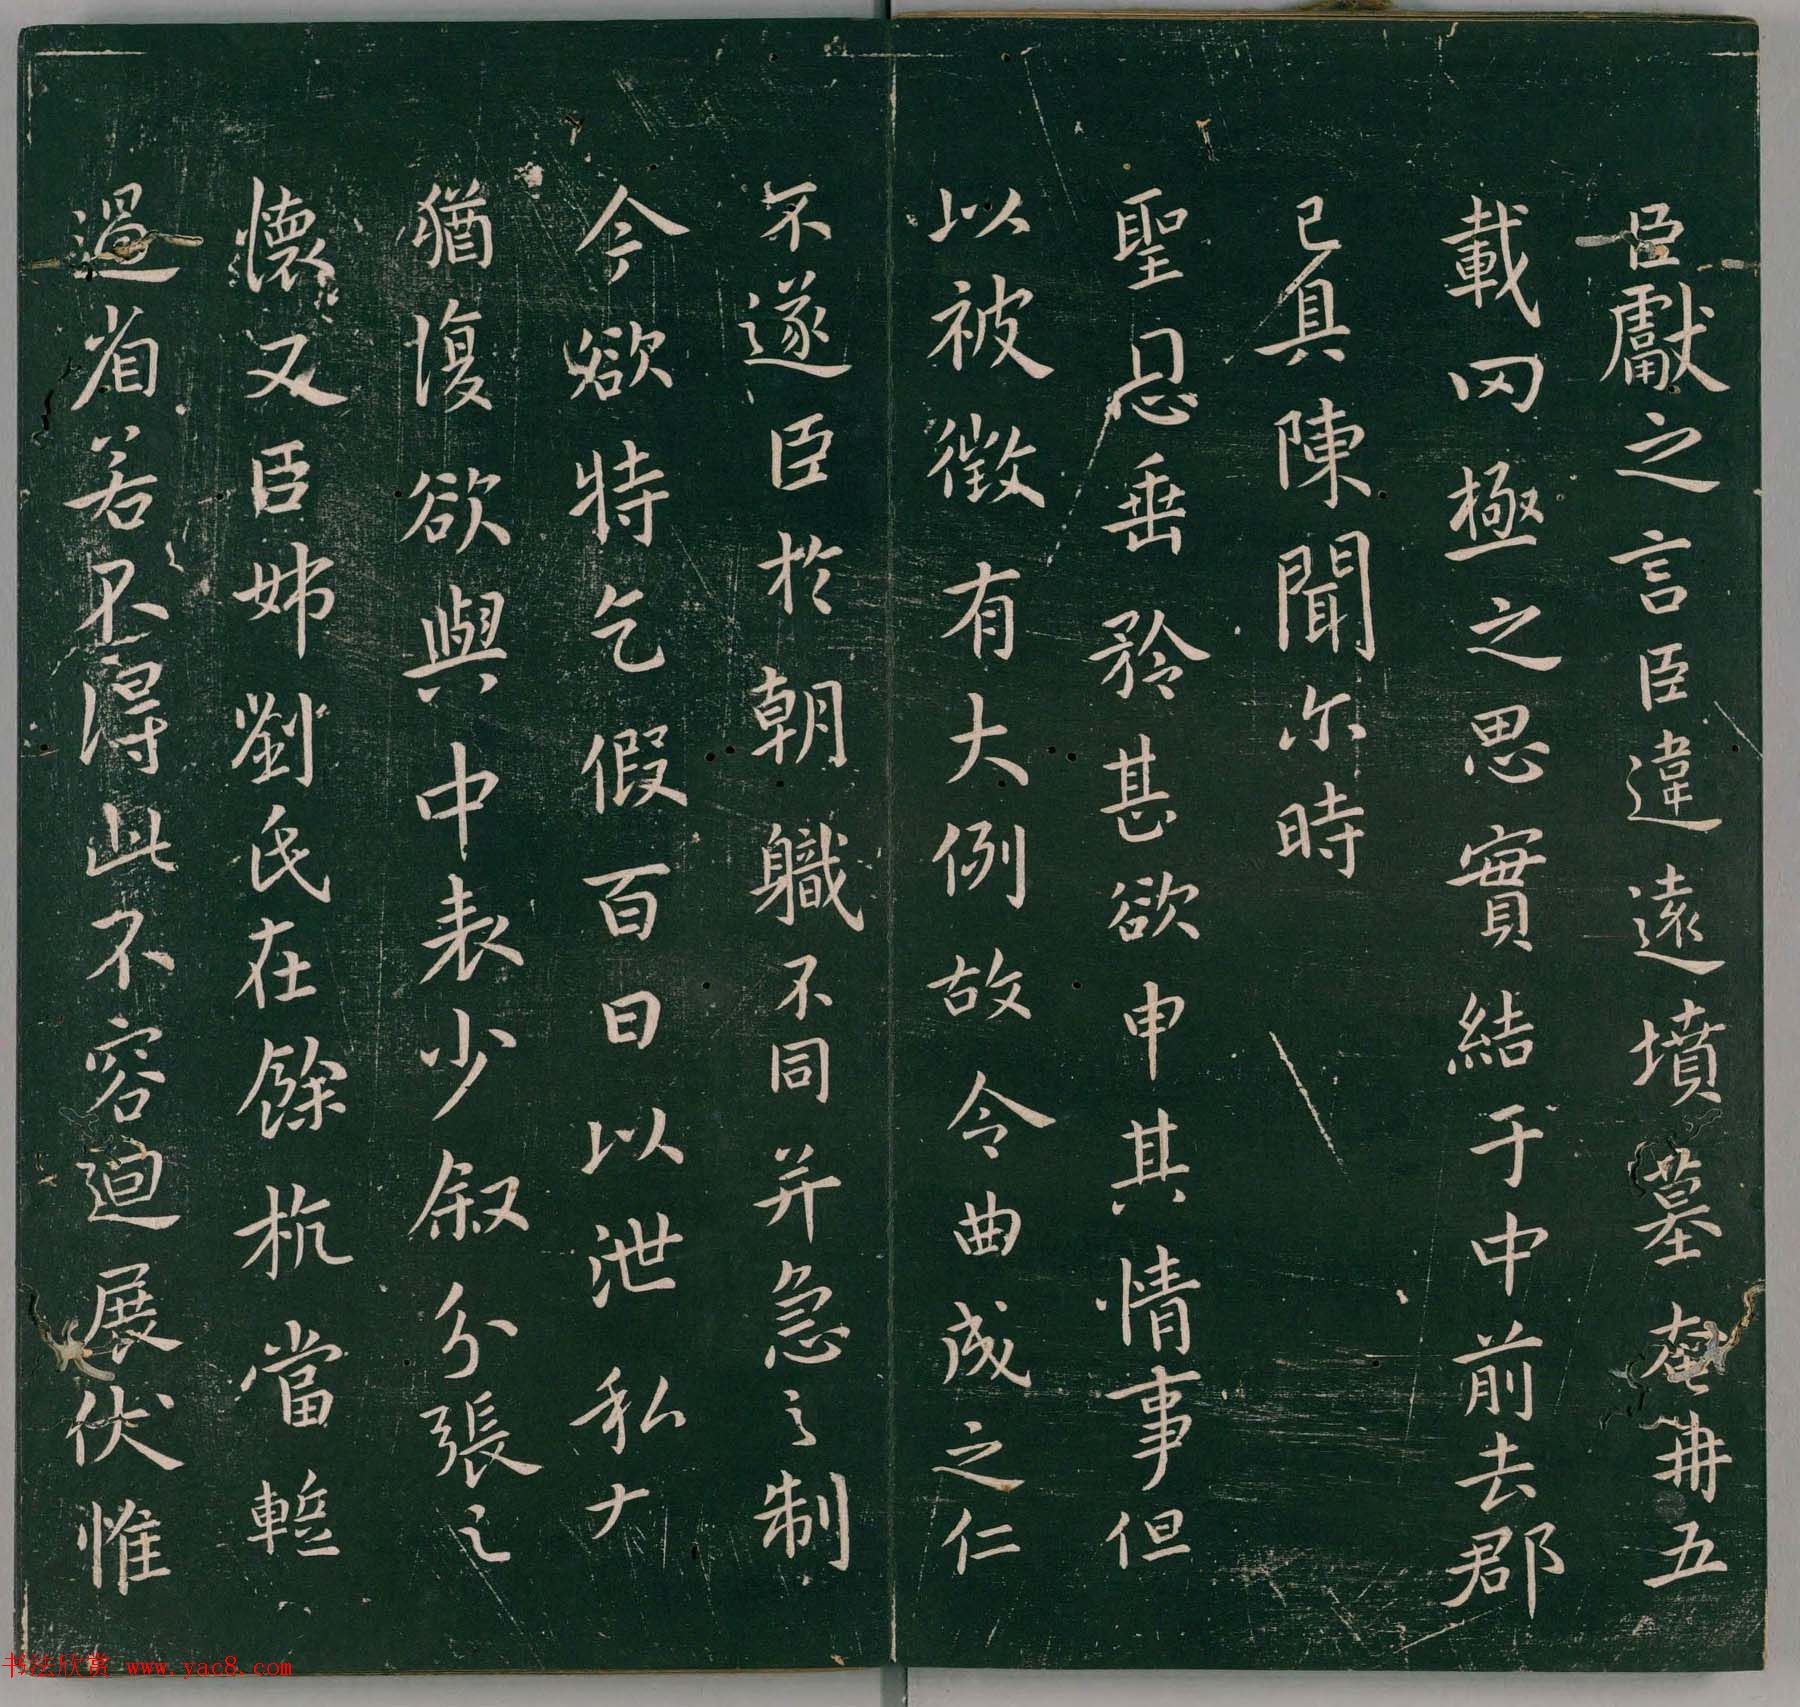 臣獻之言臣違遠墳墓奄冉五
載罔極之思實結于中前去郡
已具陳聞尔時
聖恩垂矜甚欲申其情事但
以被徵有大例故令曲成之仁
不遂臣於朝職不同并急之制
今欲特乞假百日以泄私大
猶復欲與中表少叙分張之
懷又臣姊劉氏在餘杭當蹔
過省若不得此不容迴展伏惟
书法欣赏 www.yac8.com